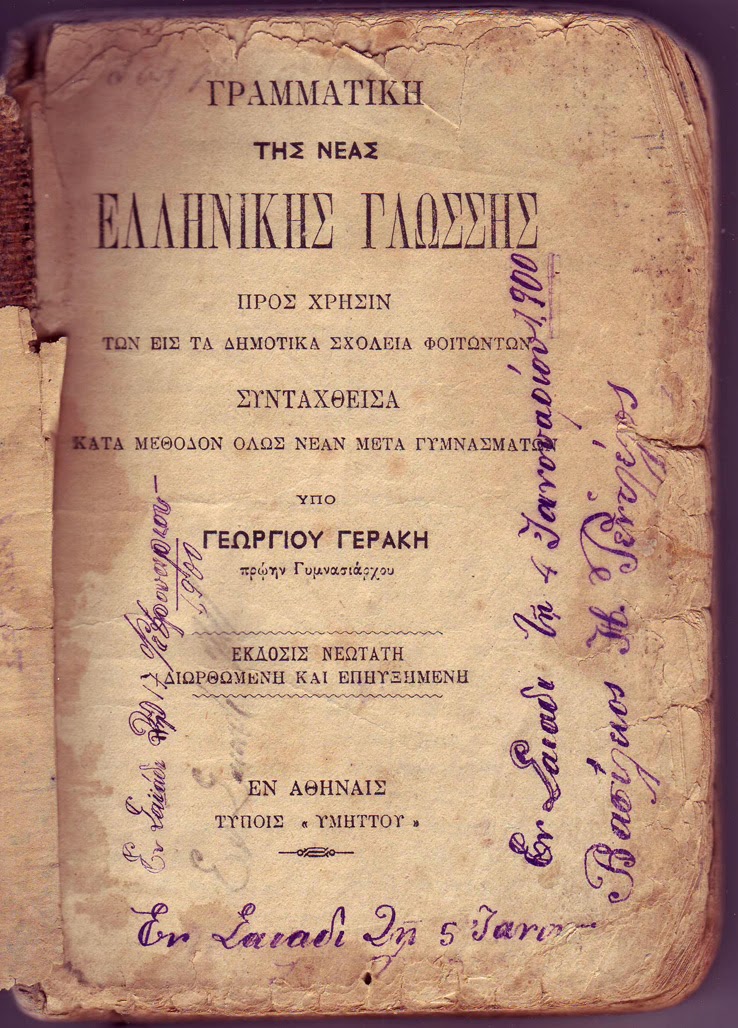 ΓΡΑΜΜΑΤΙΚΗ
ΤΗΣ ΝΕΑΣ
ΕΛΛΗΝΙΚΗΣ ΓΛΩΣΣΗΣ
ΠΡΟΣ ΧΡΗΣΙΝ
ΤΩΝ ΕΙΣ ΤΑ ΔΗΜΟΤΙΚΑ ΣΧΟΛΕΙΑ ΦΟΙΤΩΝΤΩΝ
ΣΥΝΤΑΧΘΕΙΣΑ
ΚΑΤΑ ΜΕΘΟΔΟΝ ΟΛΩΣ ΝΕΑΝ ΜΕΤΑ ΓΥΜΝΑΣΜΑΤΩΝ
ΥΠΟ
ΓΕΩΡΓΙΟΥ ΓΕΡΑΚΗ
πρώην Γυμνασιάρχου
ΕΚΔΟΣΙΣ ΝΕΩΤΑΤΗ
ΔΙΩΡΘΩΜΕΝΗ ΚΑΙ ΕΠΗΥΞΗΜΕΝΗ
ΕΝ ΑΘΗΝΑΙΣ
ΤΥΠΟΙΣ « ΥΜΗΤΤΟΥ »
Εν Σαιαδι τη 4 Ιανουαρίου 1900
Βασίλειος
Εν Σαϊάδι τη 17 Φεβρουαρίου
1900
Εν Σαιαδι τη 5 Ιανου